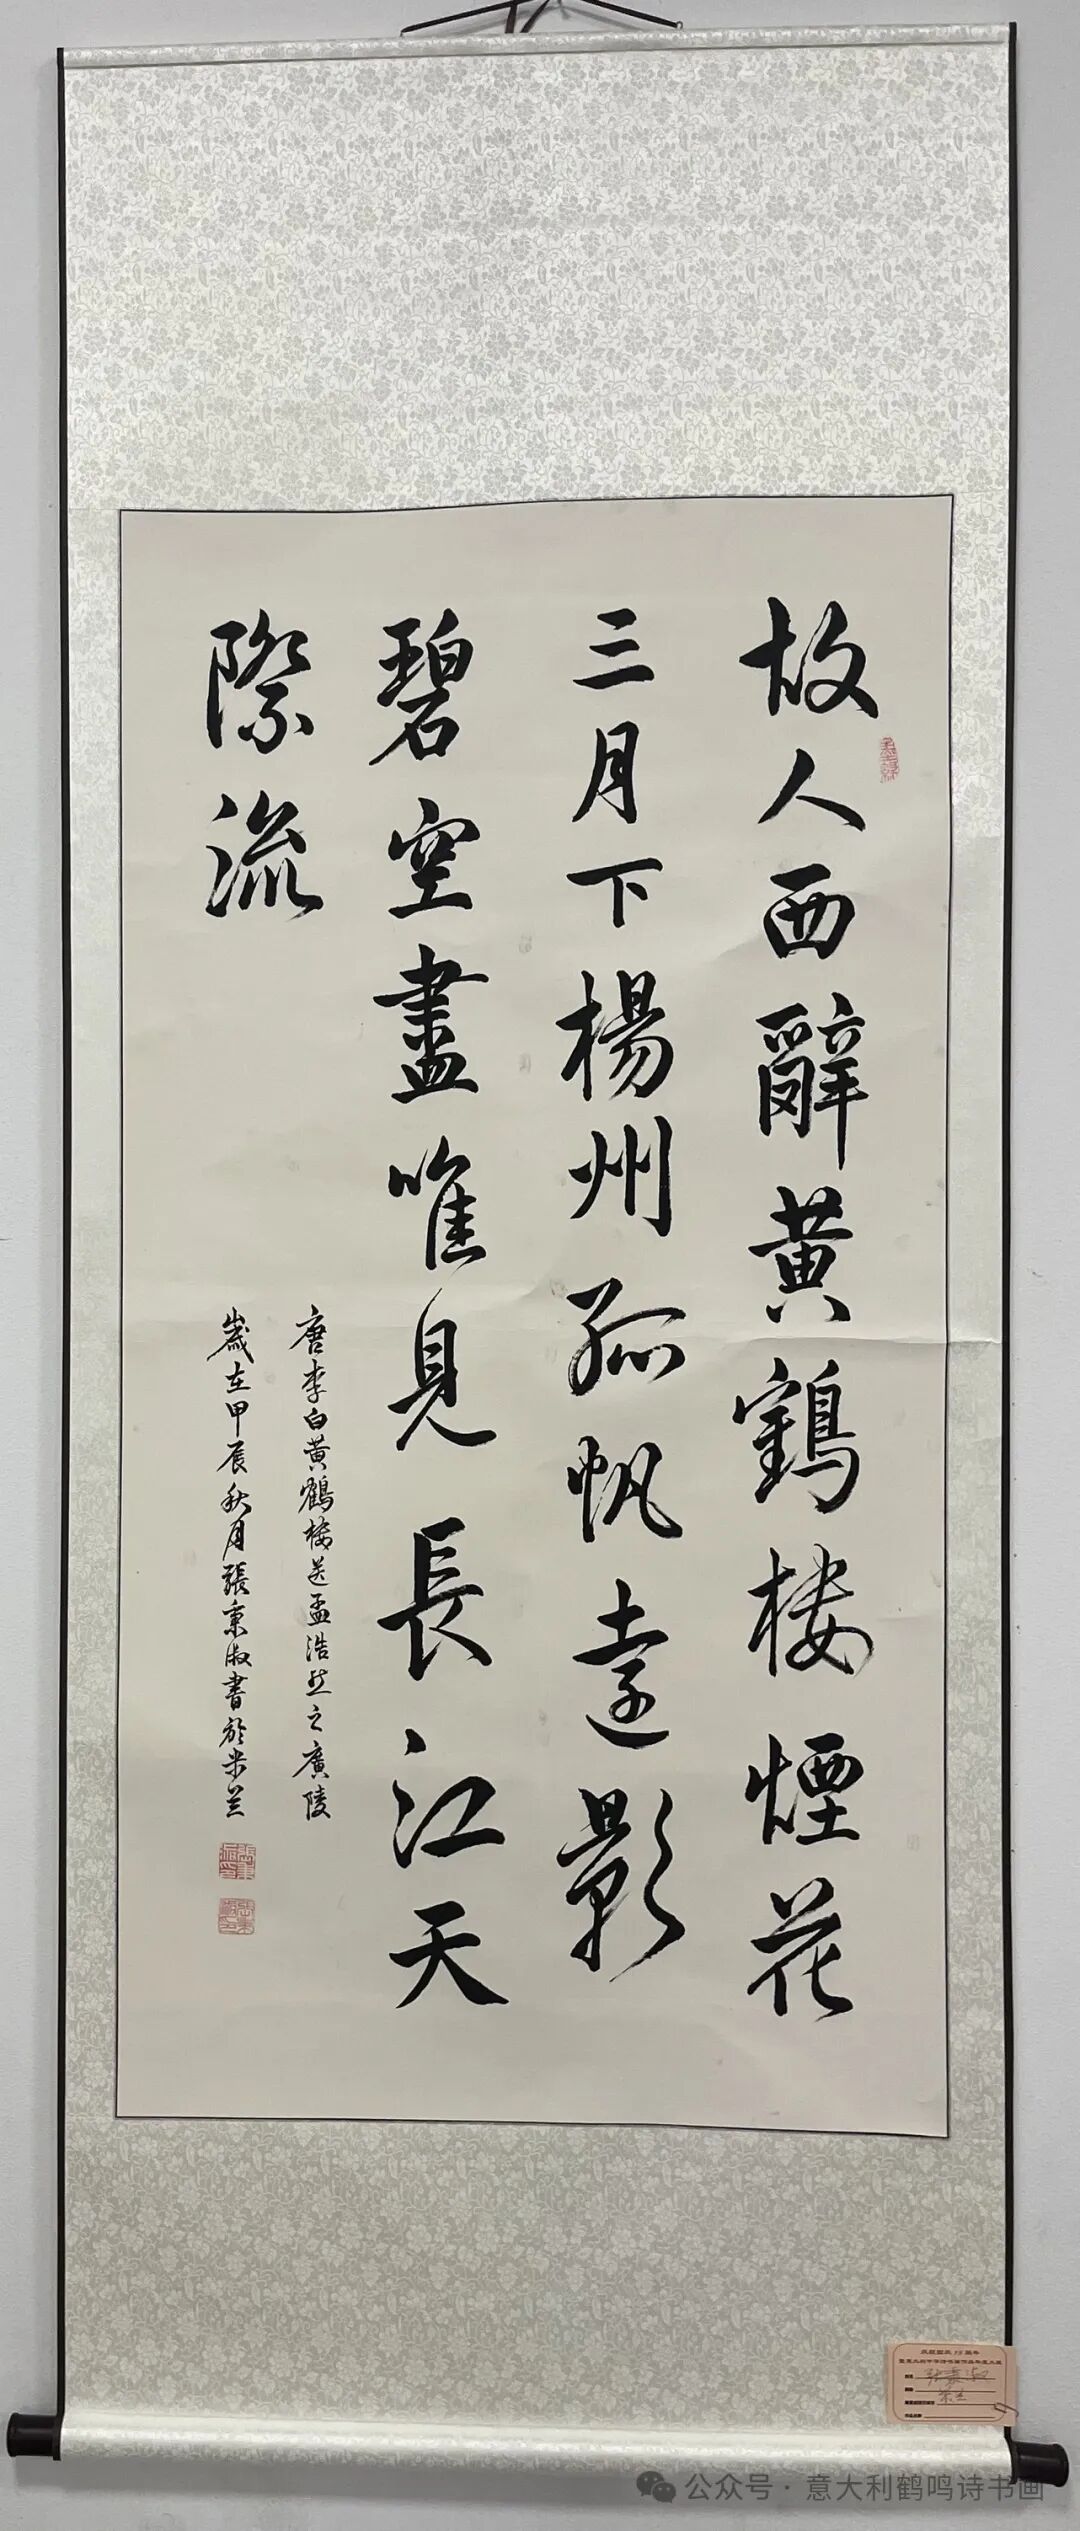 故人西辭黄鶴楼煙花
三月下楊州孤帆遠影
碧空盡唯見長江天
際流
唐李白黄鶴楼送孟浩然之廣陵
歲在甲辰秋月張秉淑書於米兰
公众号·意大利鹤鸣诗书画